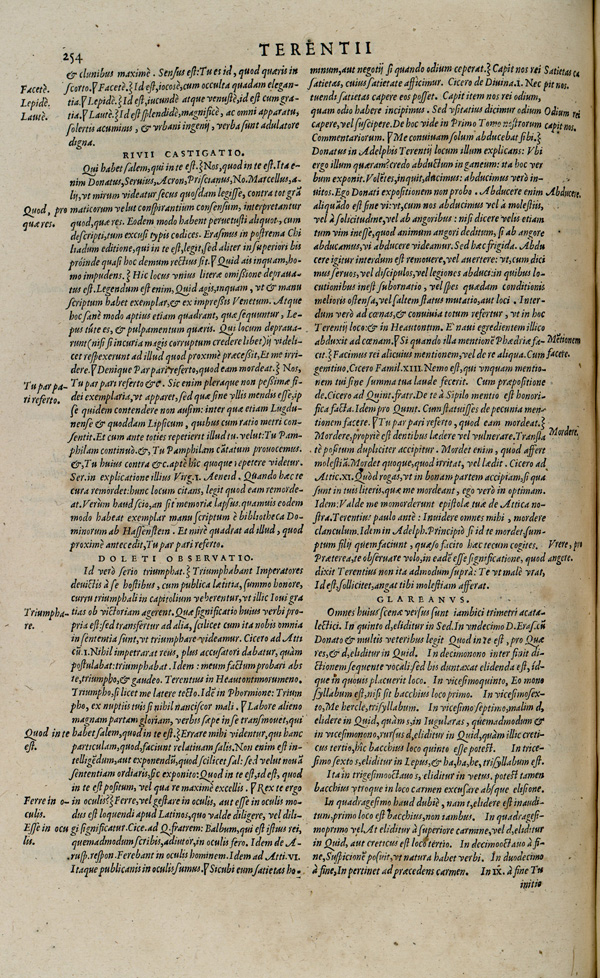 254
TERENTII
& clunibus maximè. Sensus est: Tu es id, quod quæris in
Facetè. scorto. ∇ Facetè.} Id est, iocosè, cum occulta quadam elegan-
Lepidè. tia. ∇ Lepidè.} Id est, iucundè atque venustè, id est cum gra-
Lautè. tia. ∇ Lautè.} Id est splendidè, magnificè, ac omni apparatu,
solertis acuminis, & urbani ingenij, verba sunt adulatore
digna.
RIVII CASTIGATIO.
Qui habet salem, qui in te est.} Nos, quod in te est. Ita e-
nim Donatus, Seruius, Acron, Priscianus, No. Marcellus, a-
lij, vt mirum videatur secus quosdam legisse, contra tot grā
Quod, pro maticorum velut conspirantium consensum, interpretantur
qua res. quod, quæ res. Eodem modo habent peruetusti aliquot, cum
descripti, tum excusi typis codices. Erasmus in postrema Chi
liadum editione, qui in te est, legit, sed aliter in superioribis
proinde quasi hoc demum rectius sit. ∇ Quid ais inquam, ho-
mo impudens.} Hic locus vnius literæ omissione deprauа-
tus est. Legendum est enim, Quid agis, inquam, vt & manu
scriptum habet exemplar, & ex impressis Venetum. Atque
hoc sanè modo aptius etiam quadrant, quæ sequuntur, Le-
pus tute es, & pulpamentum quæris. Qui locum depraua-
runt (nisi si incuria magis corruptum credere libet) ij videli-
cet respexerunt ad illud quod proximè præcessit, Et me irri-
dere. ∇ Denique Par pari referto, quod eam mordeat.} Nos,
Tu par pa- Tu par pari referto &c. Sic enim pleraque non pessimæ fi-
ri referto. dei exemplaria, vt apparet, sed quæ sine vllis mendis esse, ip
se quidem contendere non ausim: inter quæ etiam Lugdu-
nense & quoddam Lipsicum, quibus cum ratio metri con-
sentit. Et cum ante toties repetierit illud tu. velut: Tu Pam-
philam continuò. &, Tu Pamphilam cātatum prouocemus.
&, Tu huius contra &c. aptè hîc quoque repetere videtur.
Ser. in explicatione illius Virg. 1. Aeneid. Quando hæc te
cura remordet: hunc locum citans, legit quod eam remorde-
at. Verùm haud scio, an sit memoriæ lapsus. quamuis eodem
modo habeat exemplar manu scriptum è bibliotheca Do-
minorum ab Hassenstein. Et mirè quadrat ad illud, quod
proximè antecedit, Tu par pari referto.
DOLETI OBSERVATIO.
Id verò seriò triumphat.} Triumphabant Imperatores
deuictis à se hostibus, cum publica lætitia, summo honore,
curru triumphali in capitolium veherentur, vt illic Ioui gra
Triumpha- tias ob victoriam agerent. Quæ significatio huius verbi pro-
re. pria est: sed transfertur ad alia, scilicet cum ita nobis omnia
in sententia sunt, vt triumphare videamur. Cicero ad Atti
cū. 1. Nihil impetrarat reus, plus accusatori dabatur, quàm
postulabat: triumphabat. Idem: meum factum probari abs
te, triumpho, & gaudeo. Terentius in Heautontimorumeno.
Triumpho, si licet me latere tecto. Idē in Phormione: Trium
pho, ex nuptiis tuis si nihil nanciscor mali. ∇ Labore alieno
magnam partam gloriam, verbis sæpe in se transmouet, qui
Quod in te habet salem, quod in te est.} Errare mihi videntur, qui hanc
est. particulam, quod, faciunt relatiuam salis. Non enim est in-
telligēdum, aut exponendū, quod scilicet sal: sed velut nouā
sententiam ordiaris, sic exponito: Quod in te est, id est, quod
in te est positum, vel qua re maximè excellis. ∇ Rex te ergo
Ferre in o- in oculis? Ferre, vel gestare in oculis, aut esse in oculis mo-
culis. dus est loquendi apud Latinos, quo valde diligere, vel dili-
Esse in ocu gi significatur. Cice. ad Q. fratrem: Balbum, qui est istius rei,
lis. quemadmodum scribis, adiutor, in oculis fero. Idem de A-
rusp. respon. Ferebant in oculis hominem. Idem ad Atti. VI.
Itaque publicanis in oculis sumus. ∇ Sicubi eum satietas ho-
minum, aut negotij si quando odium ceperat.} Capit nos rei Satietas ca
satietas, cuius satietate afficimur. Cicero de Diuina. 1. Nec pit nos.
tuendi satietas capere eos posset. Capit item nos rei odium,
quam odio habere incipimus. Sed vsitatius dicimur odium Odium rei
capere, vel suscipere. De hoc vide in Primo Tomo nostrorum capit nos.
Commentariorum. ∇ Me conuiuam solum abducebat sibi.}
Donatus in Adelphis Terentij locum illum explicans: Vbi
ergo illum quæram? credo abductum in ganeum: ita hoc ver
bum exponit. Volētes, inquit, ducimus: abducimus verò in-
uitos. Ego Donati expositionem non probo. Abducere enim Abducere.
aliquādo est sine vi: vt, cum nos abducimus vel à molestiis,
vel à solicitudine, vel ab angoribus: nisi dicere velis etiam
tum vim inesse, quod animum angori deditum, si ab angore
abducamus, vi abducere videamur. Sed hæc frigida. Abdu
cere igitur interdum est remouere, vel auertere: vt, cum dici
mus seruos, vel discipulos, vel legiones abduci: in quibus lo-
cutionibus inest subornatio, vel spes quædam conditionis
melioris ostensa, vel saltem status mutatio, aut loci. Inter-
dum verò ad cœnas, & conuiuia totum refertur, vt in hoc
Terentij loco: & in Heautontim. E naui egredientem illico
abduxit ad cœnam. ∇ Si quando illa mentionē Phædriæ fa- Mentionem
cit.} Facimus rei alicuius mentionem, vel de re aliqua. Cum facere.
gentiuo, Cicero Famil. XIII. Nemo est, qui vnquam mentio-
nem tui sine summa tua laude fecerit. Cum præpositione
de. Cicero ad Quint. fratr. De te à Sipilo mentio est honori-
fica facta. Idem pro Quint. Cum statuisses de pecunia men-
tionem facere. ∇ Tu par pari referto, quod eam mordeat.} Mordere.
Mordere, propriè est dentibus lædere vel vulnerare. Transla
tè positum dupliciter accipitur. Mordet enim, quod affert
molestiā. Mordet quoque, quod irritat, vel lædit. Cicero ad
Attic. XI. Quòd rogas, vt in bonam partem accipiam, si qua
sunt in tuis literis, quæ me mordeant, ego verò in optimam.
Idem: Valde me momorderunt epistolæ tuæ de Attica no-
stra. Terentius paulo antè: Inuidere omnes mihi, mordere
clanculum. Idem in Adelph. Principiò si id te mordet: sum-
ptum filij quem faciunt, quæso facito hæc tecum cogites. Vrere, pro
Præterea, te obseruate volo, in eadē esse significatione, quod angere.
dixit Terentius non ita admodum suprà: Te vt malè vrat,
Id est, sollicitet, angat tibi molestiam afferat.
GLAREANVS.
Omnes huius scenæ versus sunt iambici trimetri acata-
lectici. In quinto d, eliditur in Sed. In vndecimo D. Erasmū
Donato & multis veteribus legit Quod in te est, pro Quæ
res, & d, eliditur in Quid. In decimonono inter sinit di-
ctionem sequente vocali sed bis duntaxat elidenda est, id-
que in quouis placuerit loco. In vicesimoquinto, Eo mono
syllabum est, nisi sit bacchius loco primo. In vicesimosex-
to, Me hercle, trisyllabum. In vicesimo septimo, malim d,
elidere in Quid, quàm s, in Iugularas, quemadmodum &
in vicesimonono, rursus d, eliditur in Quid, quàm illic creti-
cus tertio, hîc bacchius loco quinto esse potest. In trice-
simo sexto s, eliditur in Lepus, & ha, ha, he, trisyllabum est.
Ita in trigesimooctauo s, eliditur in vetus. potest tamen
bacchius vtroque in loco carmen excusare absque elisione.
In quadragesimo haud dubiè, nam t, elidere est inaudi-
tum. primo loco est bacchius, non iambus. In quadragesi-
moprimo vel At eliditur à superiore carmine, vel d, eliditur
in Quid, aut creticus est loco tertio. In decimooctauo à fi-
ne, Suspicionē posuit, vt natura habet verbi. In duodecimo
à fine, In pertinet ad præcedens carmen. In IX. à fine Tu
initio